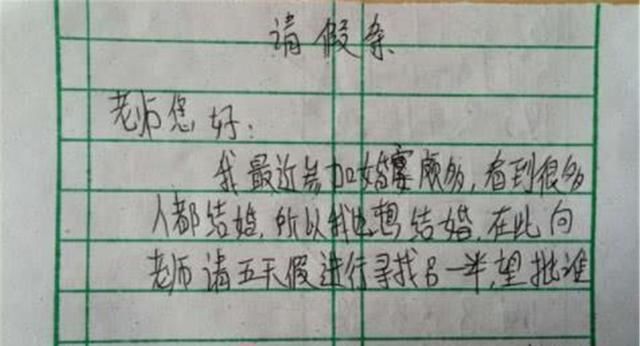 请假条
老师您好:
我最近参加婚宴颇多,看到很多
人都结婚,所以我也想结婚,在此向
老师请五天假进行寻找另一半,望批准